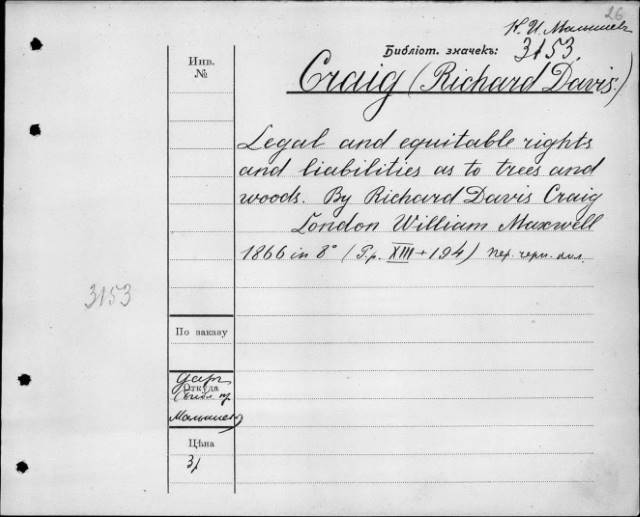 26
К. И. Малышевъ
Библіот. значекъ: 3153
Инв.
№
Craig (Richard Davis.)
Legal and equitable rights
and liabilities as to trees and
woods. By Richard Davis Craig
London William Maxwell
1866 in 8° (P.p. XIII + 194) пер. черн. кол.
3153
По заказу
даръ
Откуда
библ. пр
Малышева
Цѣна
3р